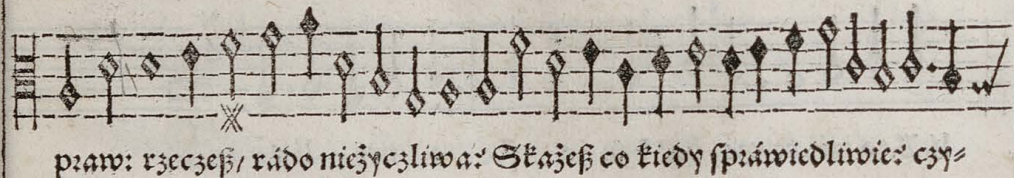 praw: rzeczeß/ rádo nieżyczliwa? Skażeß co kiedy spráwiedliwie? czy=